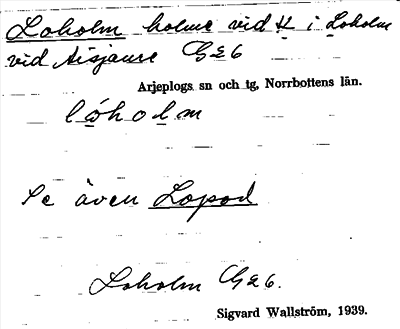 Loholm holme vid H i Loholm
vid Aisjaure G2 6
Arjeplogs sn och tg, Norrbottens län.
lóholm
Se även Lopod
Loholm G2 6.
Sigvard Wallström, 1939.